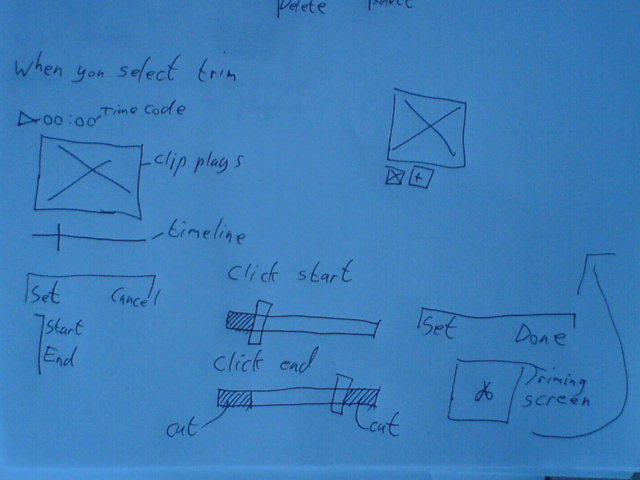 Delete
When you select trim
00:00 Time Code
clip plays
timeline
Click start
Set Cancel
Start
End
Set Done
Click end
Triming
screen
cut cut